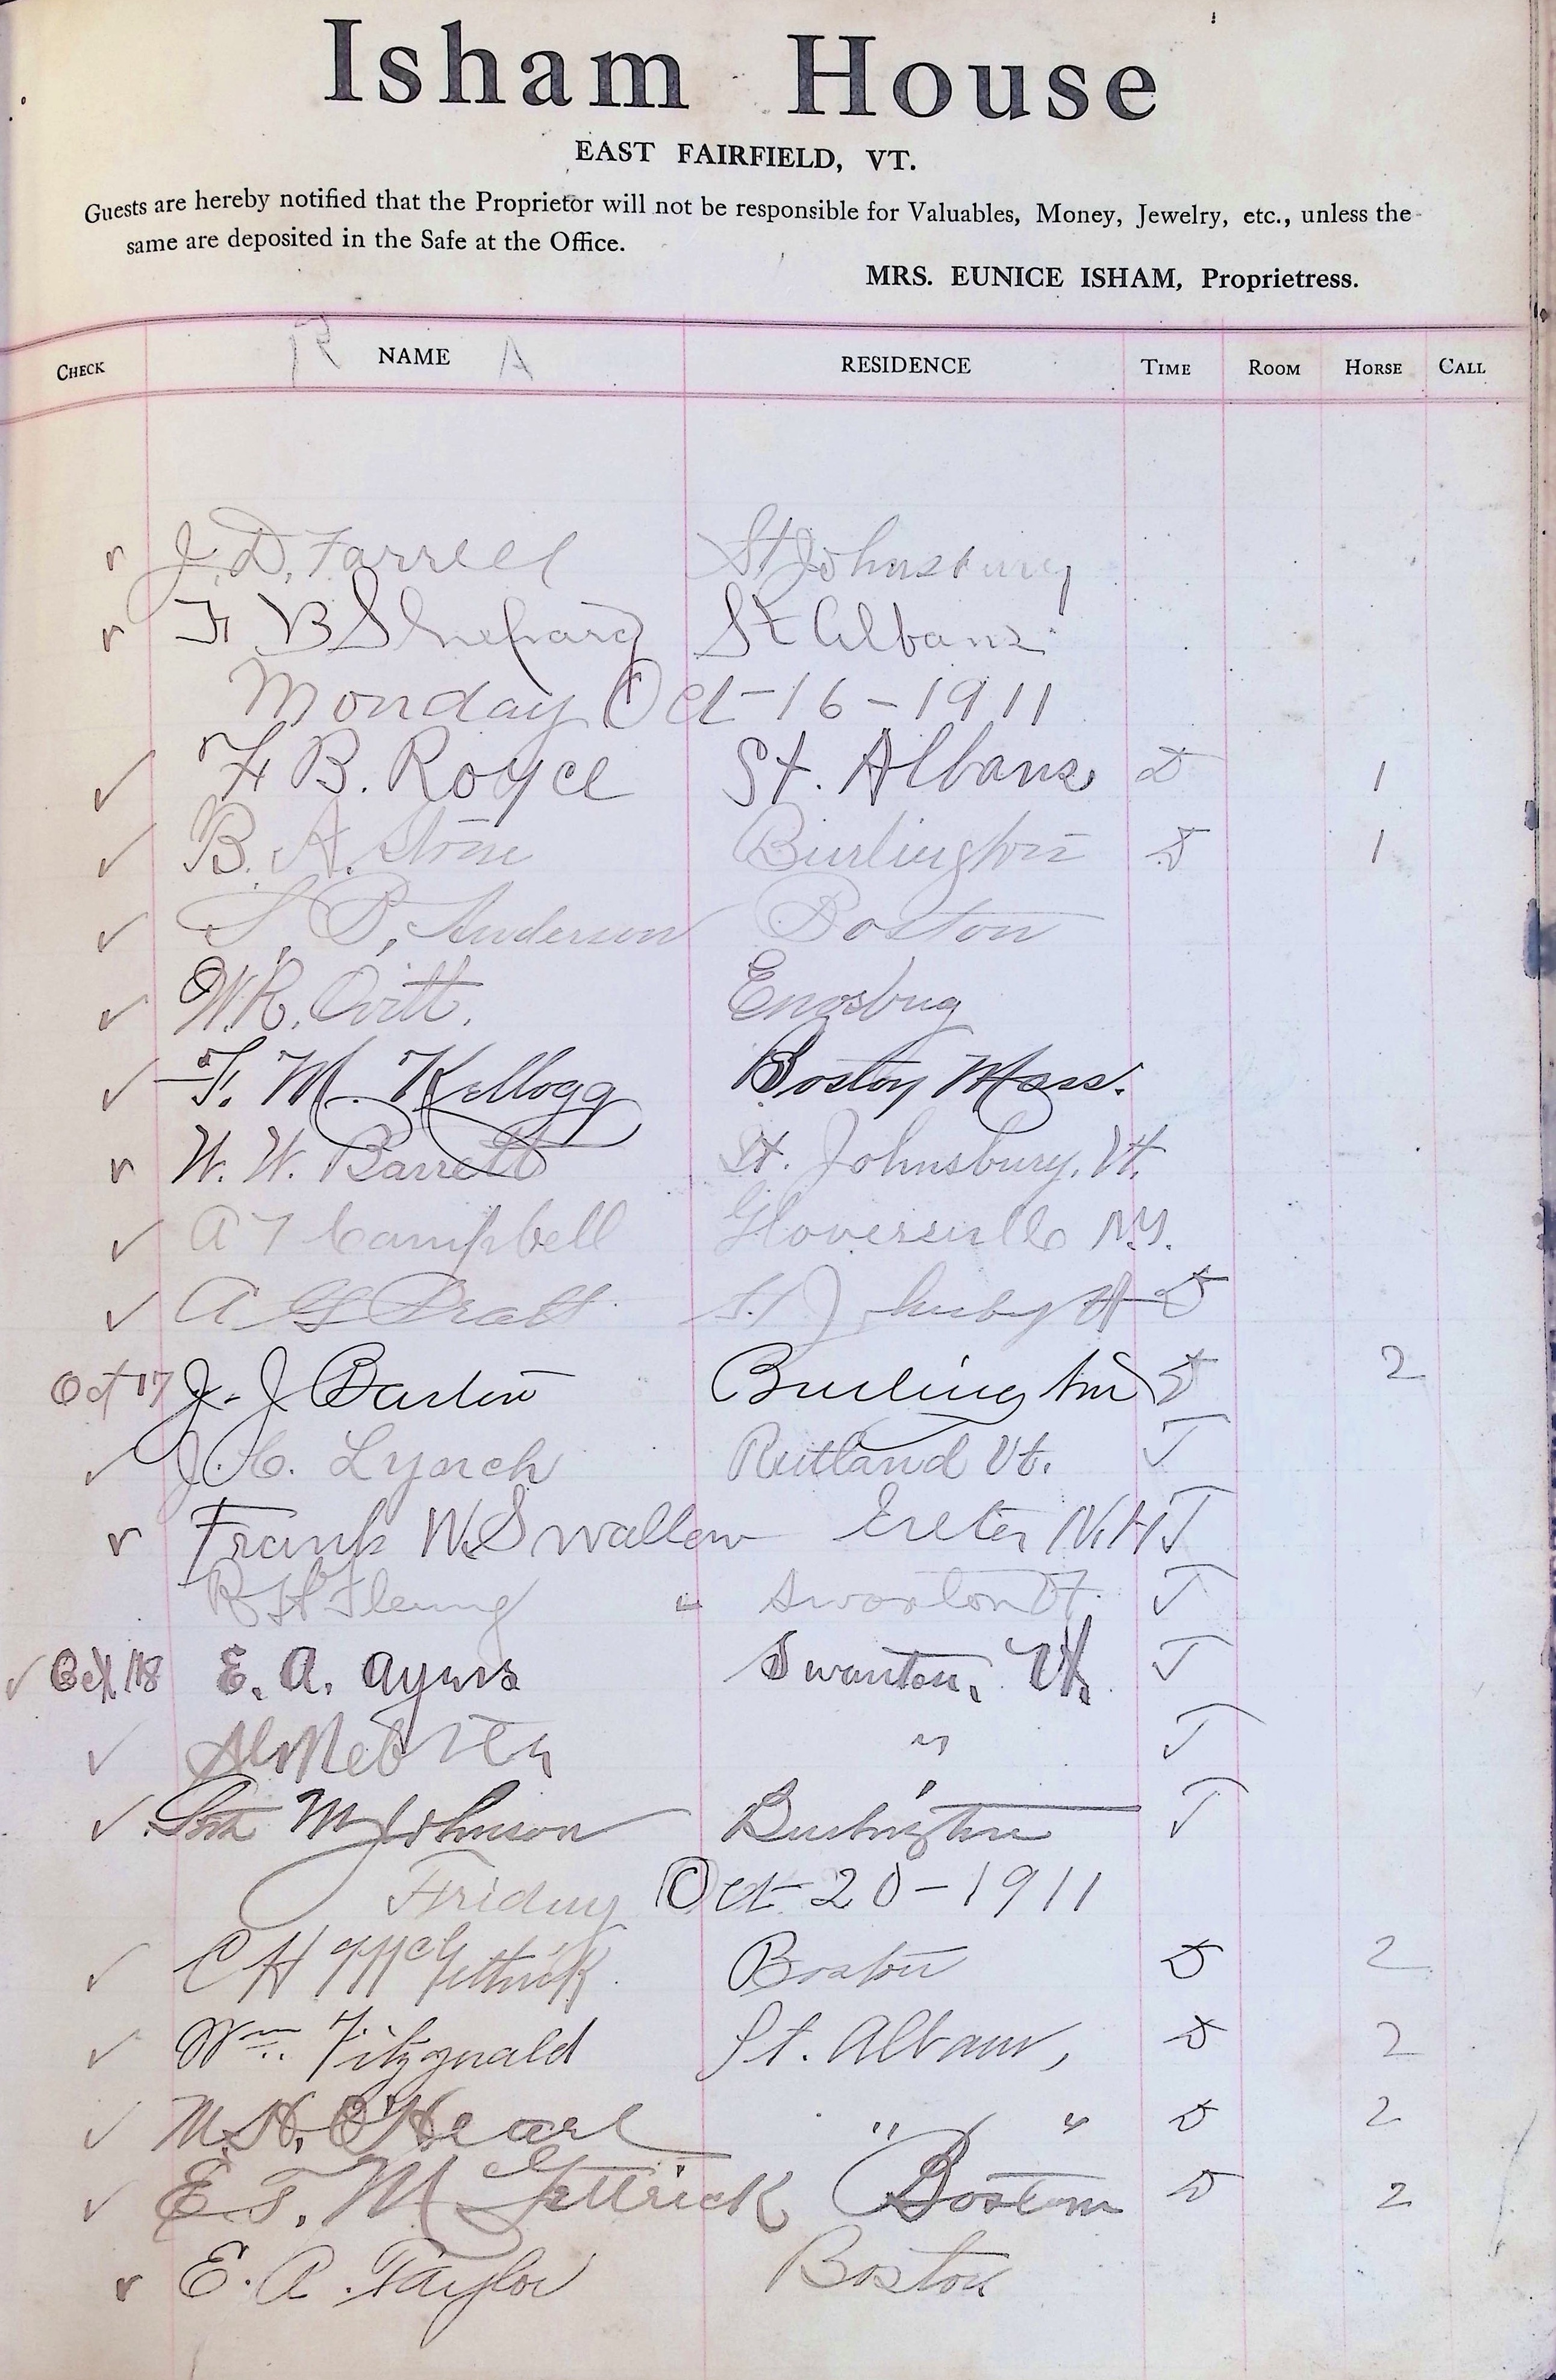 Isham House
EAST FAIRFIELD, VT.
Guests are hereby notified that the Proprietor will not be responsible for Valuables, Money, Jewelry, etc., unless the
same are deposited in the Safe at the Office.
MRS. EUNICE ISHAM, Proprietress.
CHECK R NAME A RESIDENCE TIME ROOM HORSE CALL
J. D. Farrell St Johnsbury
F B Shepard St Albans
Monday Oct-16-1911
✓ F B. Royce St. Albans D 1
✓ B. A. Stone Burlington D 1
✓ S. P. Anderson Boston
✓ W.R. Ovitt. Enosbug
✓ F. M. Kellogg Boston Mass.
W. W. Barrett St. Johnsbury, Vt.
✓ A T Campbell Gloversville N.Y.
✓ A G Pratt St J D
Oct 17 J. J. Barlow Burlington D 2
✓ J. C. Lynch Rutland Vt. T
Frank W. Swallow Exeter N.H T
R H Swanton Vt. T
✓ Oct 18 E. A. Ayers Swanton, Vt. T
✓ " T
✓ M Johnson Burlington T
Friday Oct-20-1911
✓ C H McGettrick Boston D 2
✓ Wm. Fitzgerald St. Albans, D 2
✓ M. H. O'Hearl " " D 2
✓ E. F. McGettrick Boston D 2
E. A. Taylor Boston